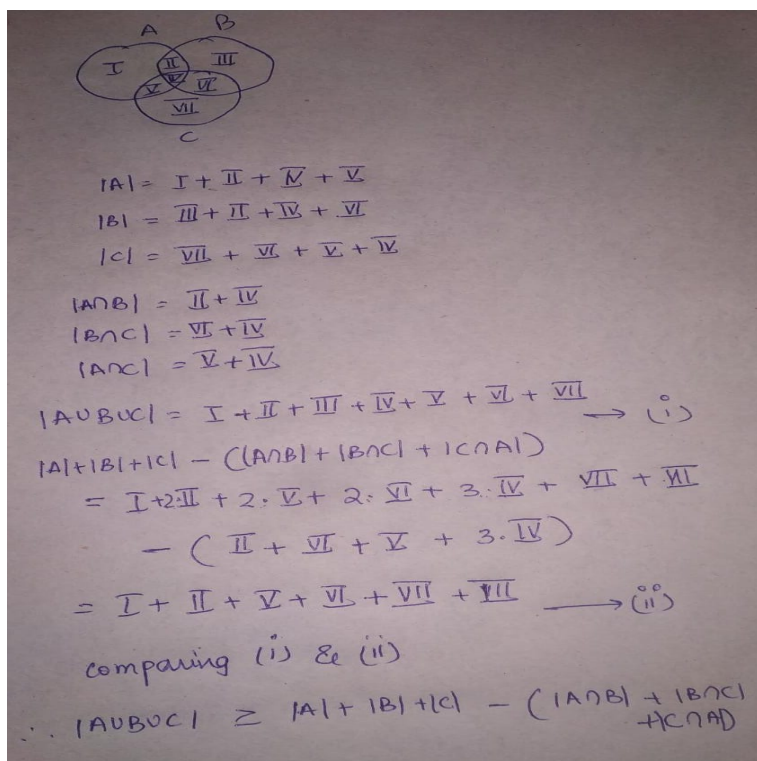 A B
I II III
IV
V VI
VII
C
|A| = I + II + IV + V
|B| = III + II + IV + VI
|C| = VII + VI + V + IV
|A∩B| = II + IV
|B∩C| = VI + IV
|A∩C| = V + IV
|A∪B∪C| = I + II + III + IV + V + VI + VII → (i)
|A|+|B|+|C| - (|A∩B| + |B∩C| + |C∩A|)
= I + 2·II + 2·V + 2·VI + 3·IV + VII + III
- (II + VI + V + 3·IV)
= I + II + V + VI + VII + III → (ii)
comparing (i) & (ii)
∴ |A∪B∪C| ≥ |A| + |B| + |C| - (|A∩B| + |B∩C|
+|C∩A|)